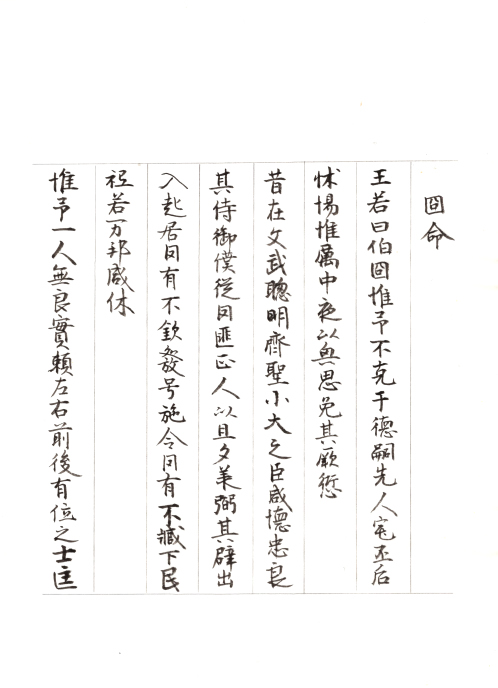 冏命
王若曰伯冏惟予不克于德嗣先人宅丕后
怵惕惟厲中夜以興思免其厥愆
昔在文武聰明齊聖小大之臣咸懷忠良
其侍御僕從罔匪正人以旦夕承弼其辟出
入起居罔有不欽發号施令罔有不臧下民
祗若万邦咸休
惟予一人無良實賴左右前後有位之士匡